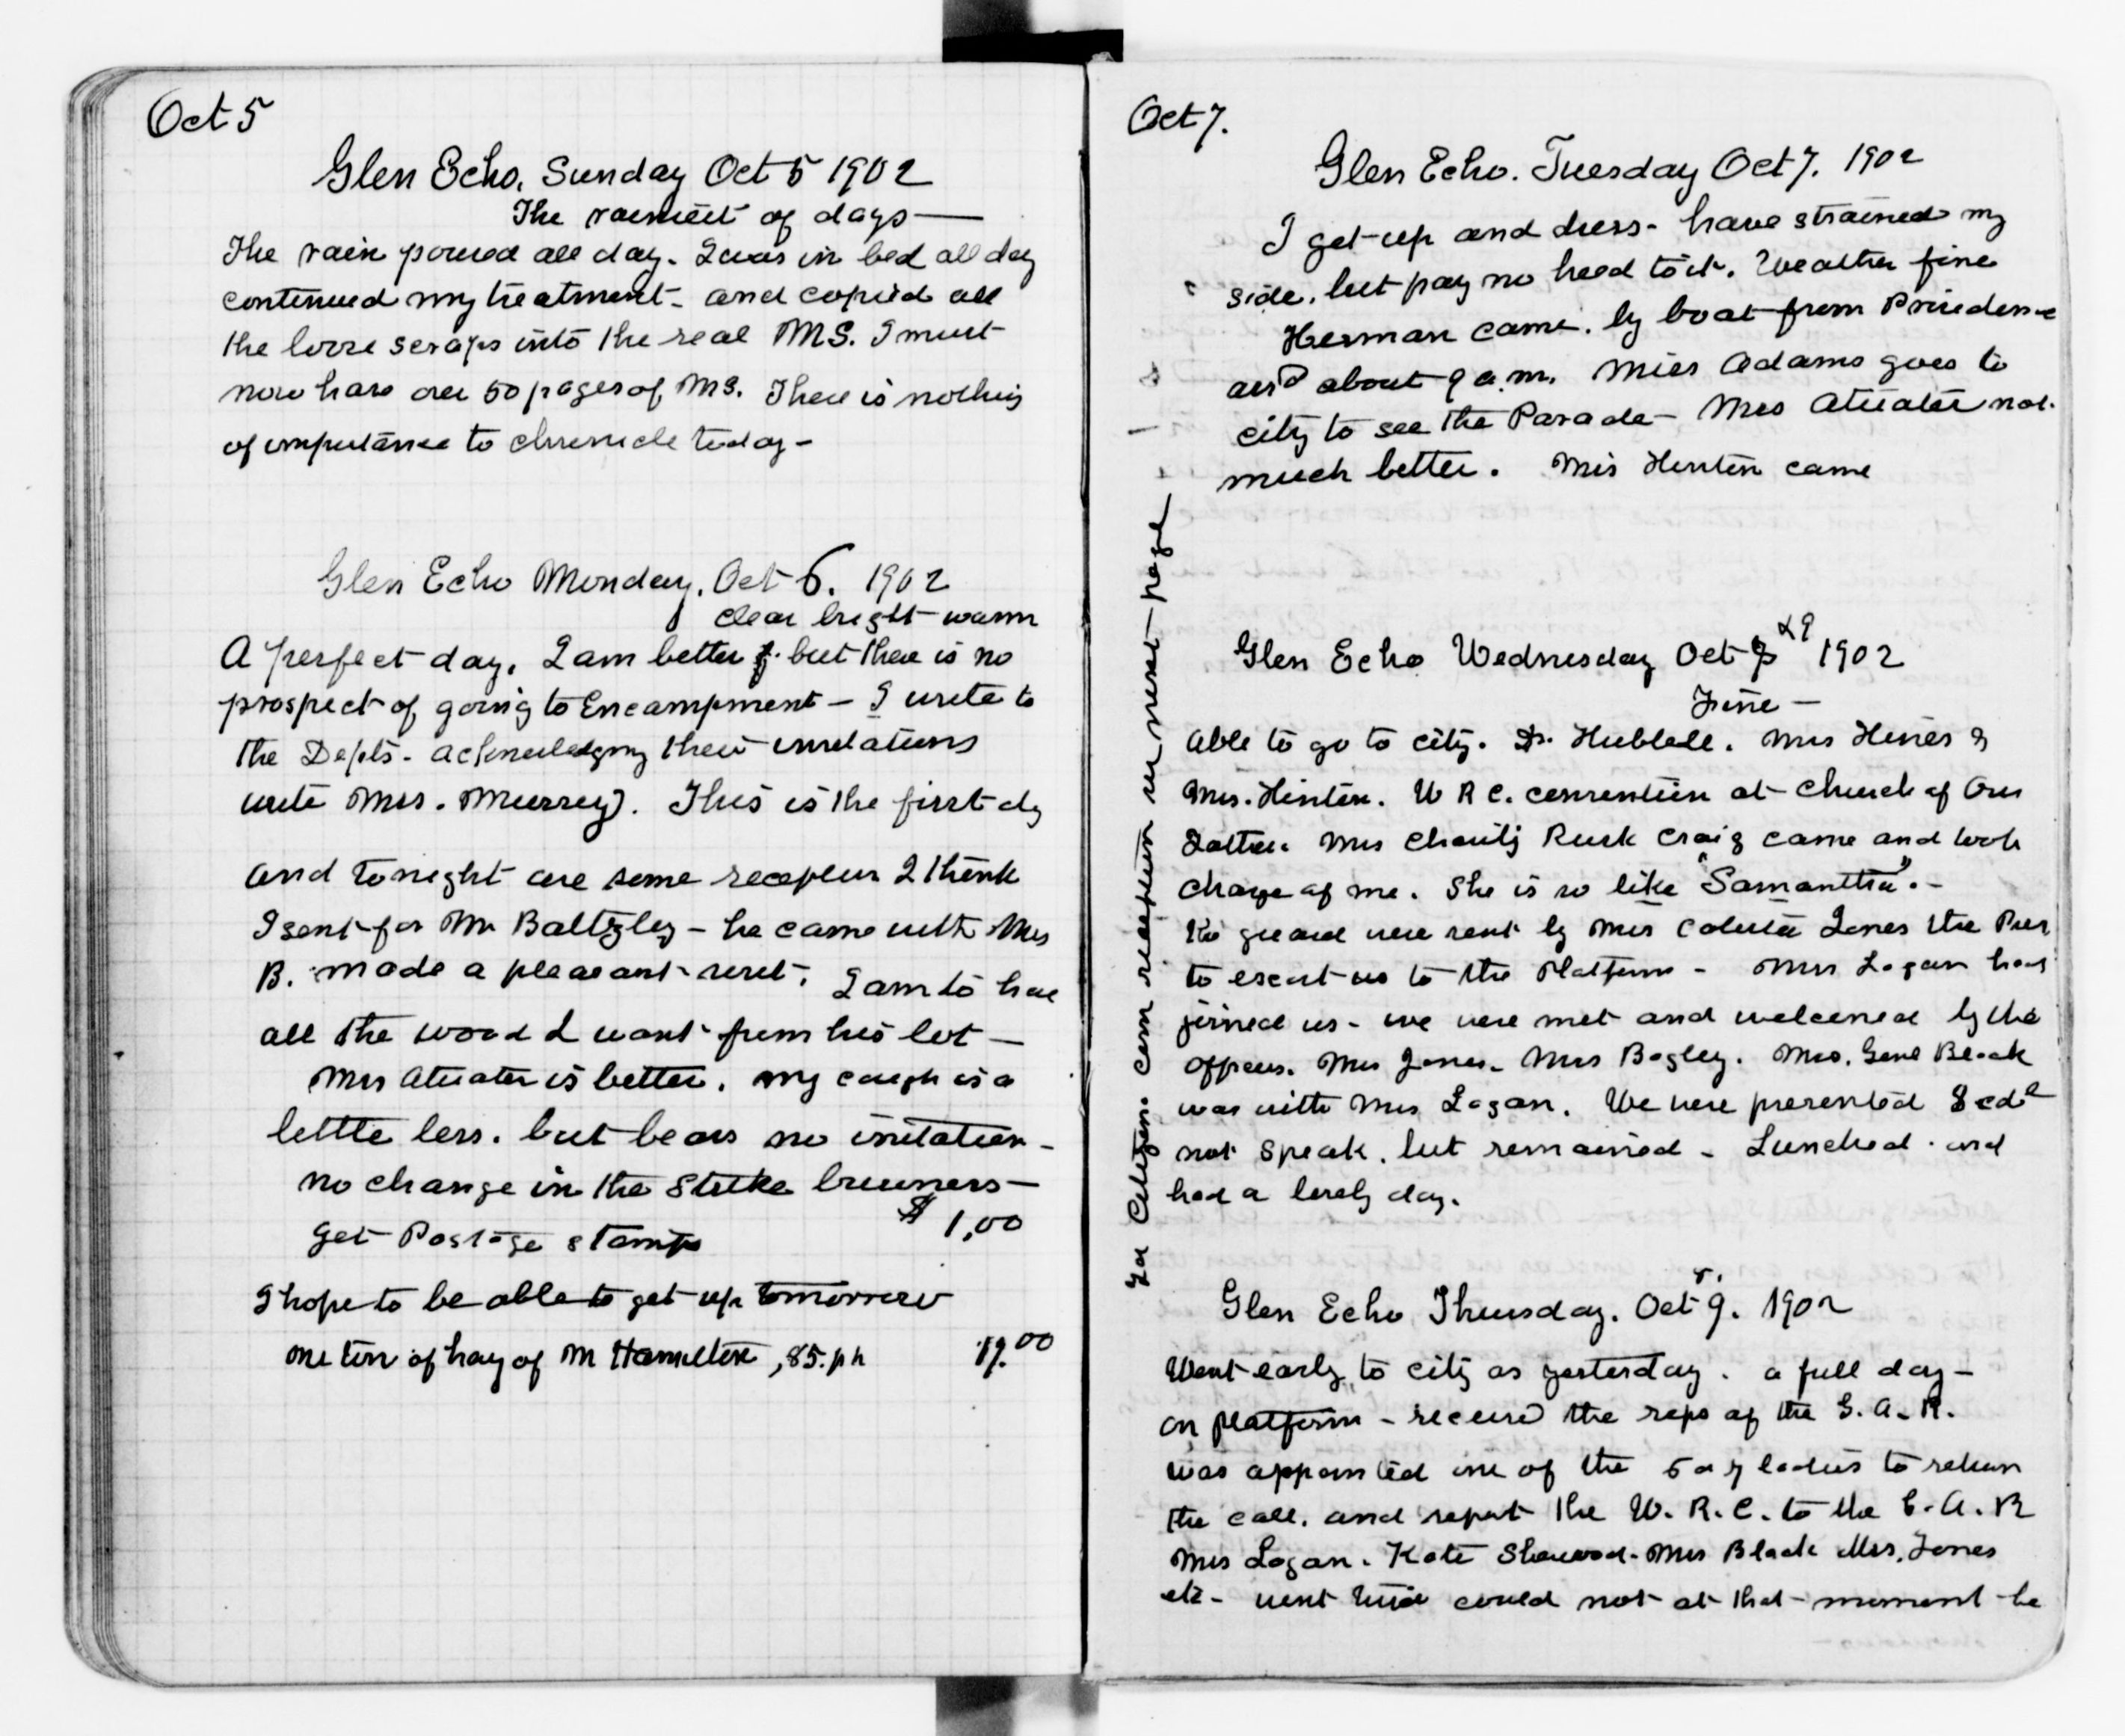 Oct 5
Glen Echo, Sunday Oct 5 1902
The rainiest of days —
The rain poured all day. I was in bed all day
continued my treatment - and copied all
the loose scraps into the real MS. I must
now have over 50 pages of MS. There is nothing
of importance to chronicle today -
Glen Echo Monday, Oct 6. 1902
clear bright warm
A perfect day, I am better but there is no
prospect of going to Encampment - I write to
the Depts. acknowledging their invitations
write Mrs. Murrey. This is the first dy
and tonight are some recepteon I think
I sent for Mr Baltzley - he came with Mrs
B. made a pleasant visit. I am to have
all the wood I want from his lot —
Mrs Atwater is better. my cough is a
little less. but bears no irritation -
no change in the strike
get Postage stamps $1,00
I hope to be able to get up tomorrow
one ton of hay of M Hamilton, 85. ph 17.00
Oct 7.
Glen Echo. Tuesday Oct 7. 1902
I get up and dress - have strained my
side, but pay no heed to it. Weather fine
Herman came. by boat from Providence
arrd about 9 a.m. Miss Adams goes to
city to see the Parade - Mrs Atwater not
much better. Mrs Hinton came
Glen Echo Wednesday Oct 8 & 9 1902
Fine -
Able to go to city. Dr. Hubbell. Mrs Hines &
Mrs. Hinton. W R C. convention at Church of Our
Father. Mrs Charity Rusk Craig came and took
charge of me. She is so like "Samantha". -
the guard were sent by Mrs Calista Jones the Pres
to escort us to the Platform - Mrs Logan had
joined us - we were met and welcomed by the
officers. Mrs Jones. Mrs Bagley. Mrs. Genl Black
was with Mrs Logan. We were presented I cd
not speak, but remained - Lunched and
had a lovely day.
Glen Echo Thursday. Oct 9. 1902
Went early to city as yesterday. a full day -
on platform - received the reps of the G. A. R.
was appointed one of the 5 ladies to return
the call. and report the W. R. C. to the G. A. R
Mrs Logan. Kate Sherwood. Mrs Black Mrs. Jones
etc - went could not at that moment be
For Citizens Com reception see next page